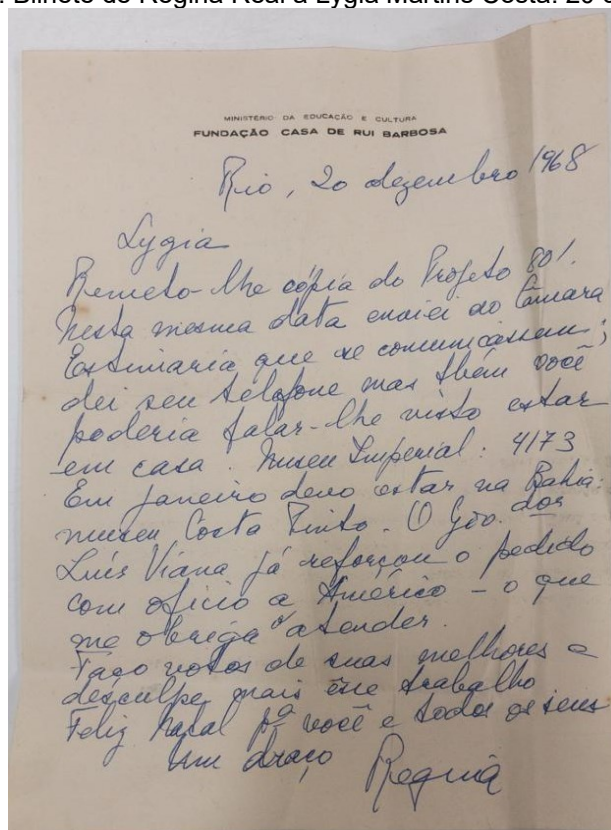 . Bilhete de Regina Real a Lygia Martins Costa. 20
MINISTÉRIO DA EDUCAÇÃO E CULTURA
FUNDAÇÃO CASA DE RUI BARBOSA
Rio, 20 dezembro 1968
Lygia
Remeto-lhe cópia do Projeto 80!
Nesta mesma data enviei ao Câmara
Estimaria que se comunicassem;
dei seu telefone mas tbém você
poderia falar-lhe visto estar
em casa. Museu Imperial: 4173
Em janeiro devo estar na Bahia:
museu Costa Pinto. O Gov. dor
Luís Viana já reforçou o pedido
com ofício a Américo - o que
me obriga a atender.
Faço votos de suas melhoras e
desculpe mais êsse trabalho
Feliz Natal pª você e todos os seus
Um abraço Regina